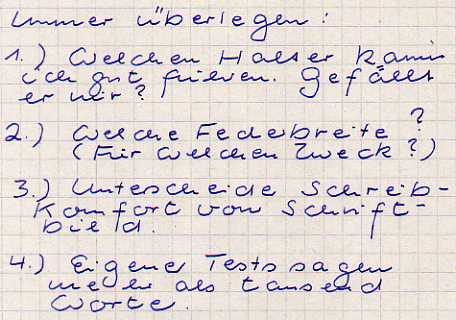 Immer überlegen:
1.) Welchen Halter kann
ich gut führen. Gefällt
er mir?
2.) Welche Federbreite?
(Für welchen Zweck?)
3.) Unterscheide Schreib-
Komfort vom Schrift-
bild.
4.) Eigene Tests sagen
mehr als tausend
Worte.